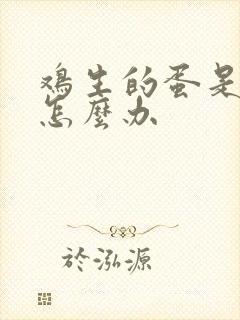 鸡生的蛋是
怎麼办
於泓源